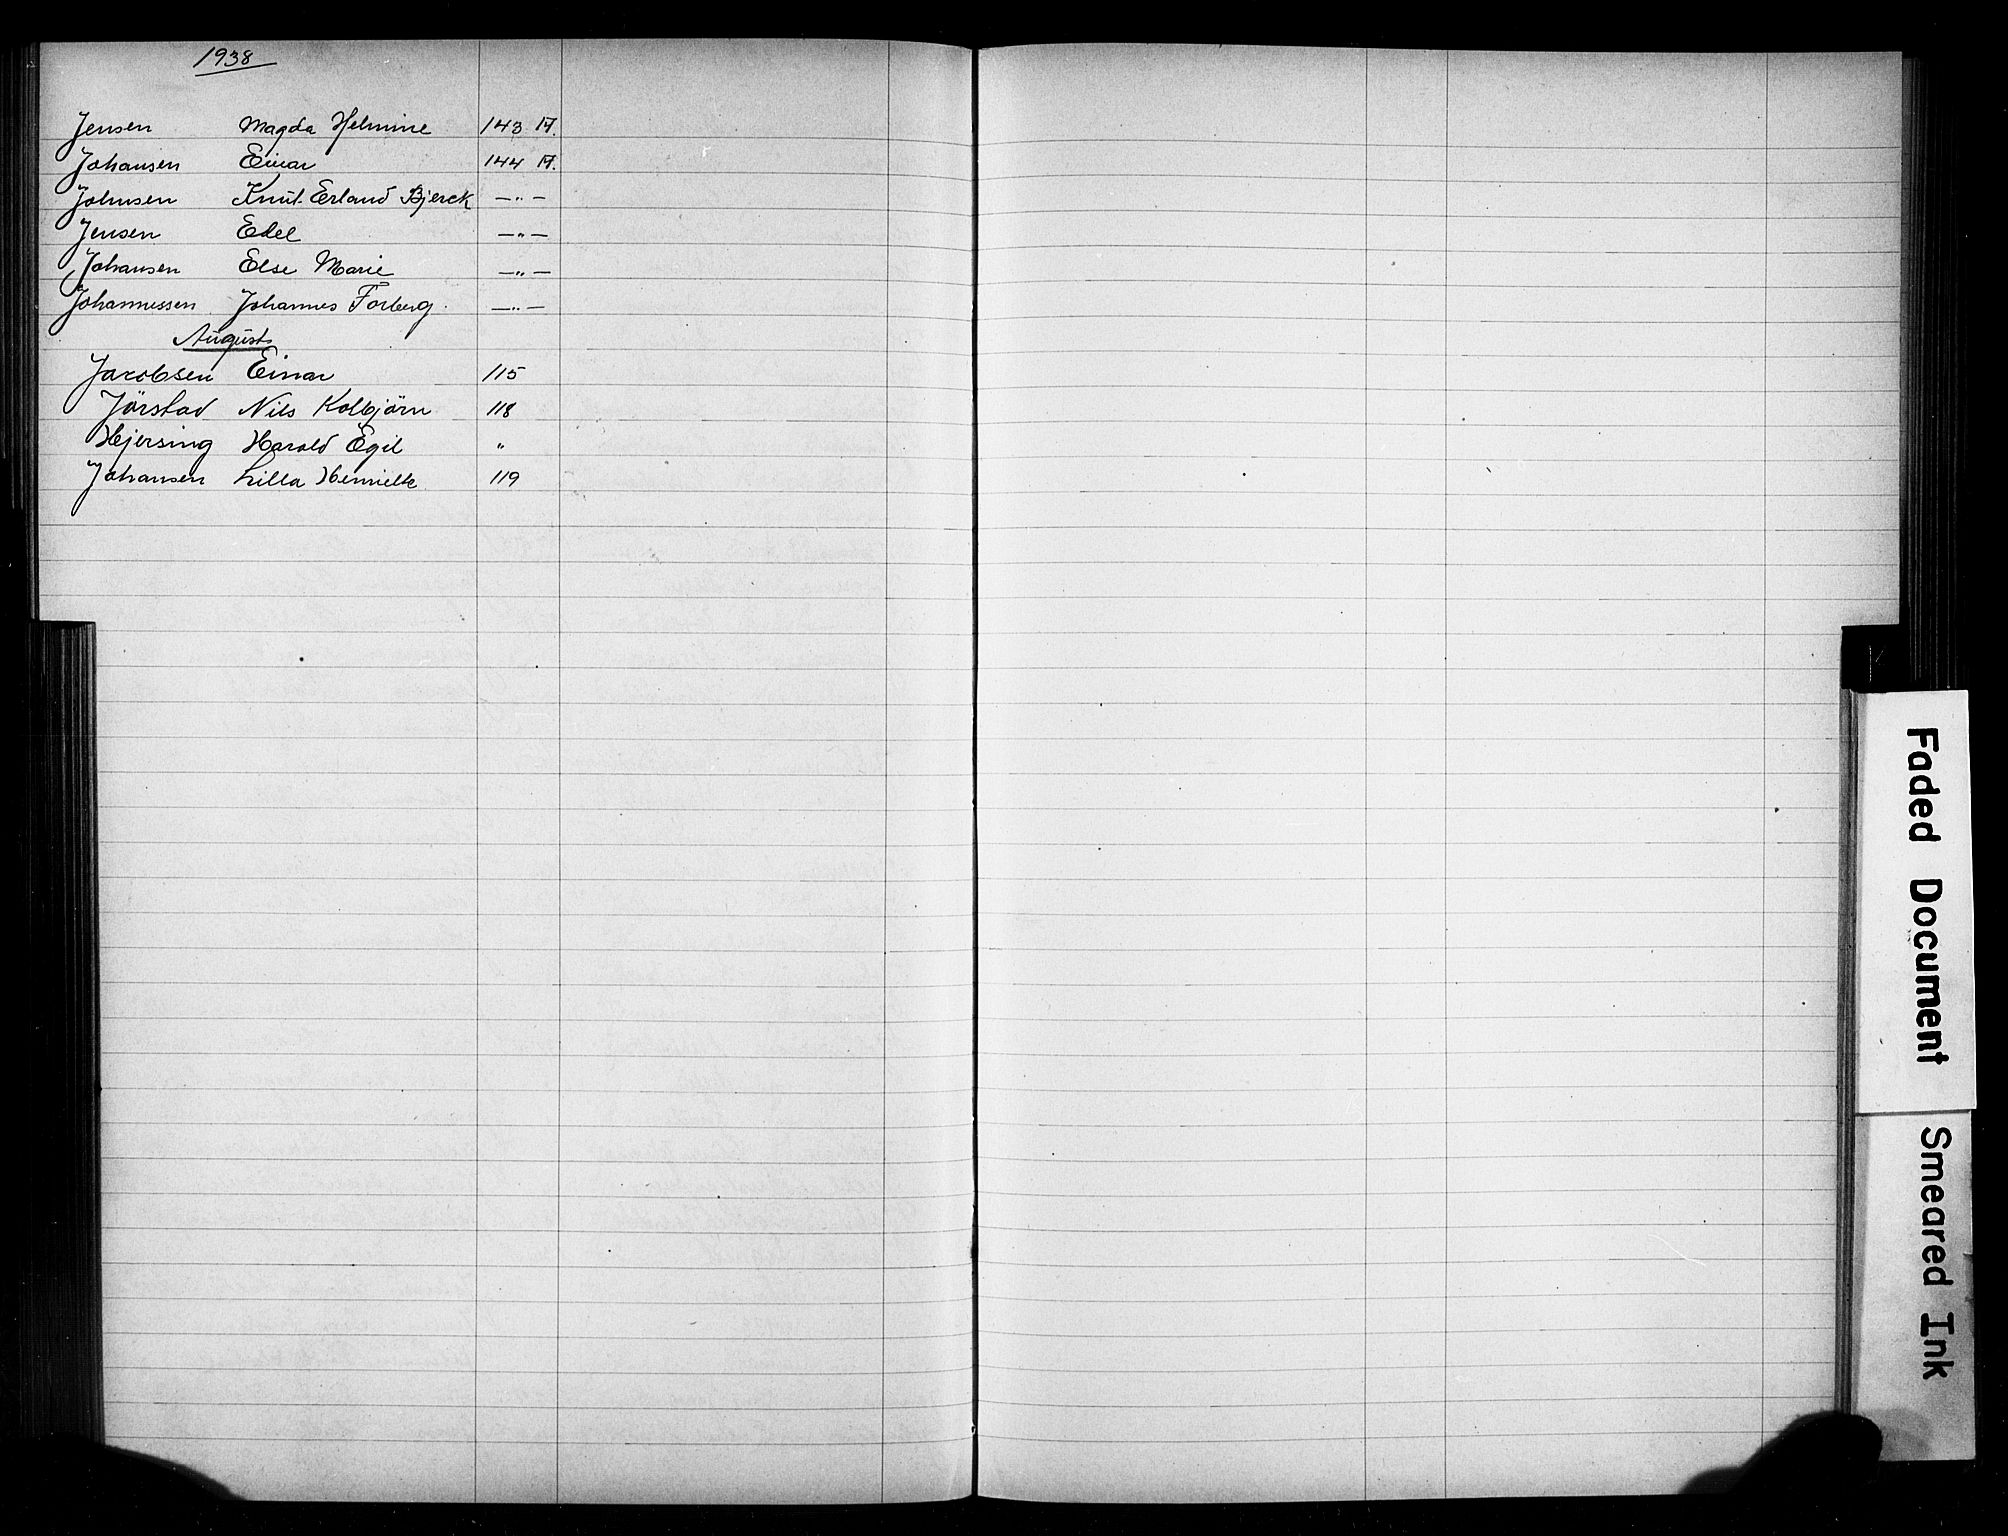 1938
Jensen Magda Helmine 143 A.
Johansen Einar 144 A.
Johnsen Knut Erland Bjerck —"—
Jensen Edel —"—
Johansen Else Marie —"—
Johannessen Johannes Forberg. —"—
August
Jacobsen Einar 115
Jörstad Nils Kolbjörn 118
Hjersing Harald Egil "
Johansen Lilla 119
K
Faded Document
Smeared Ink